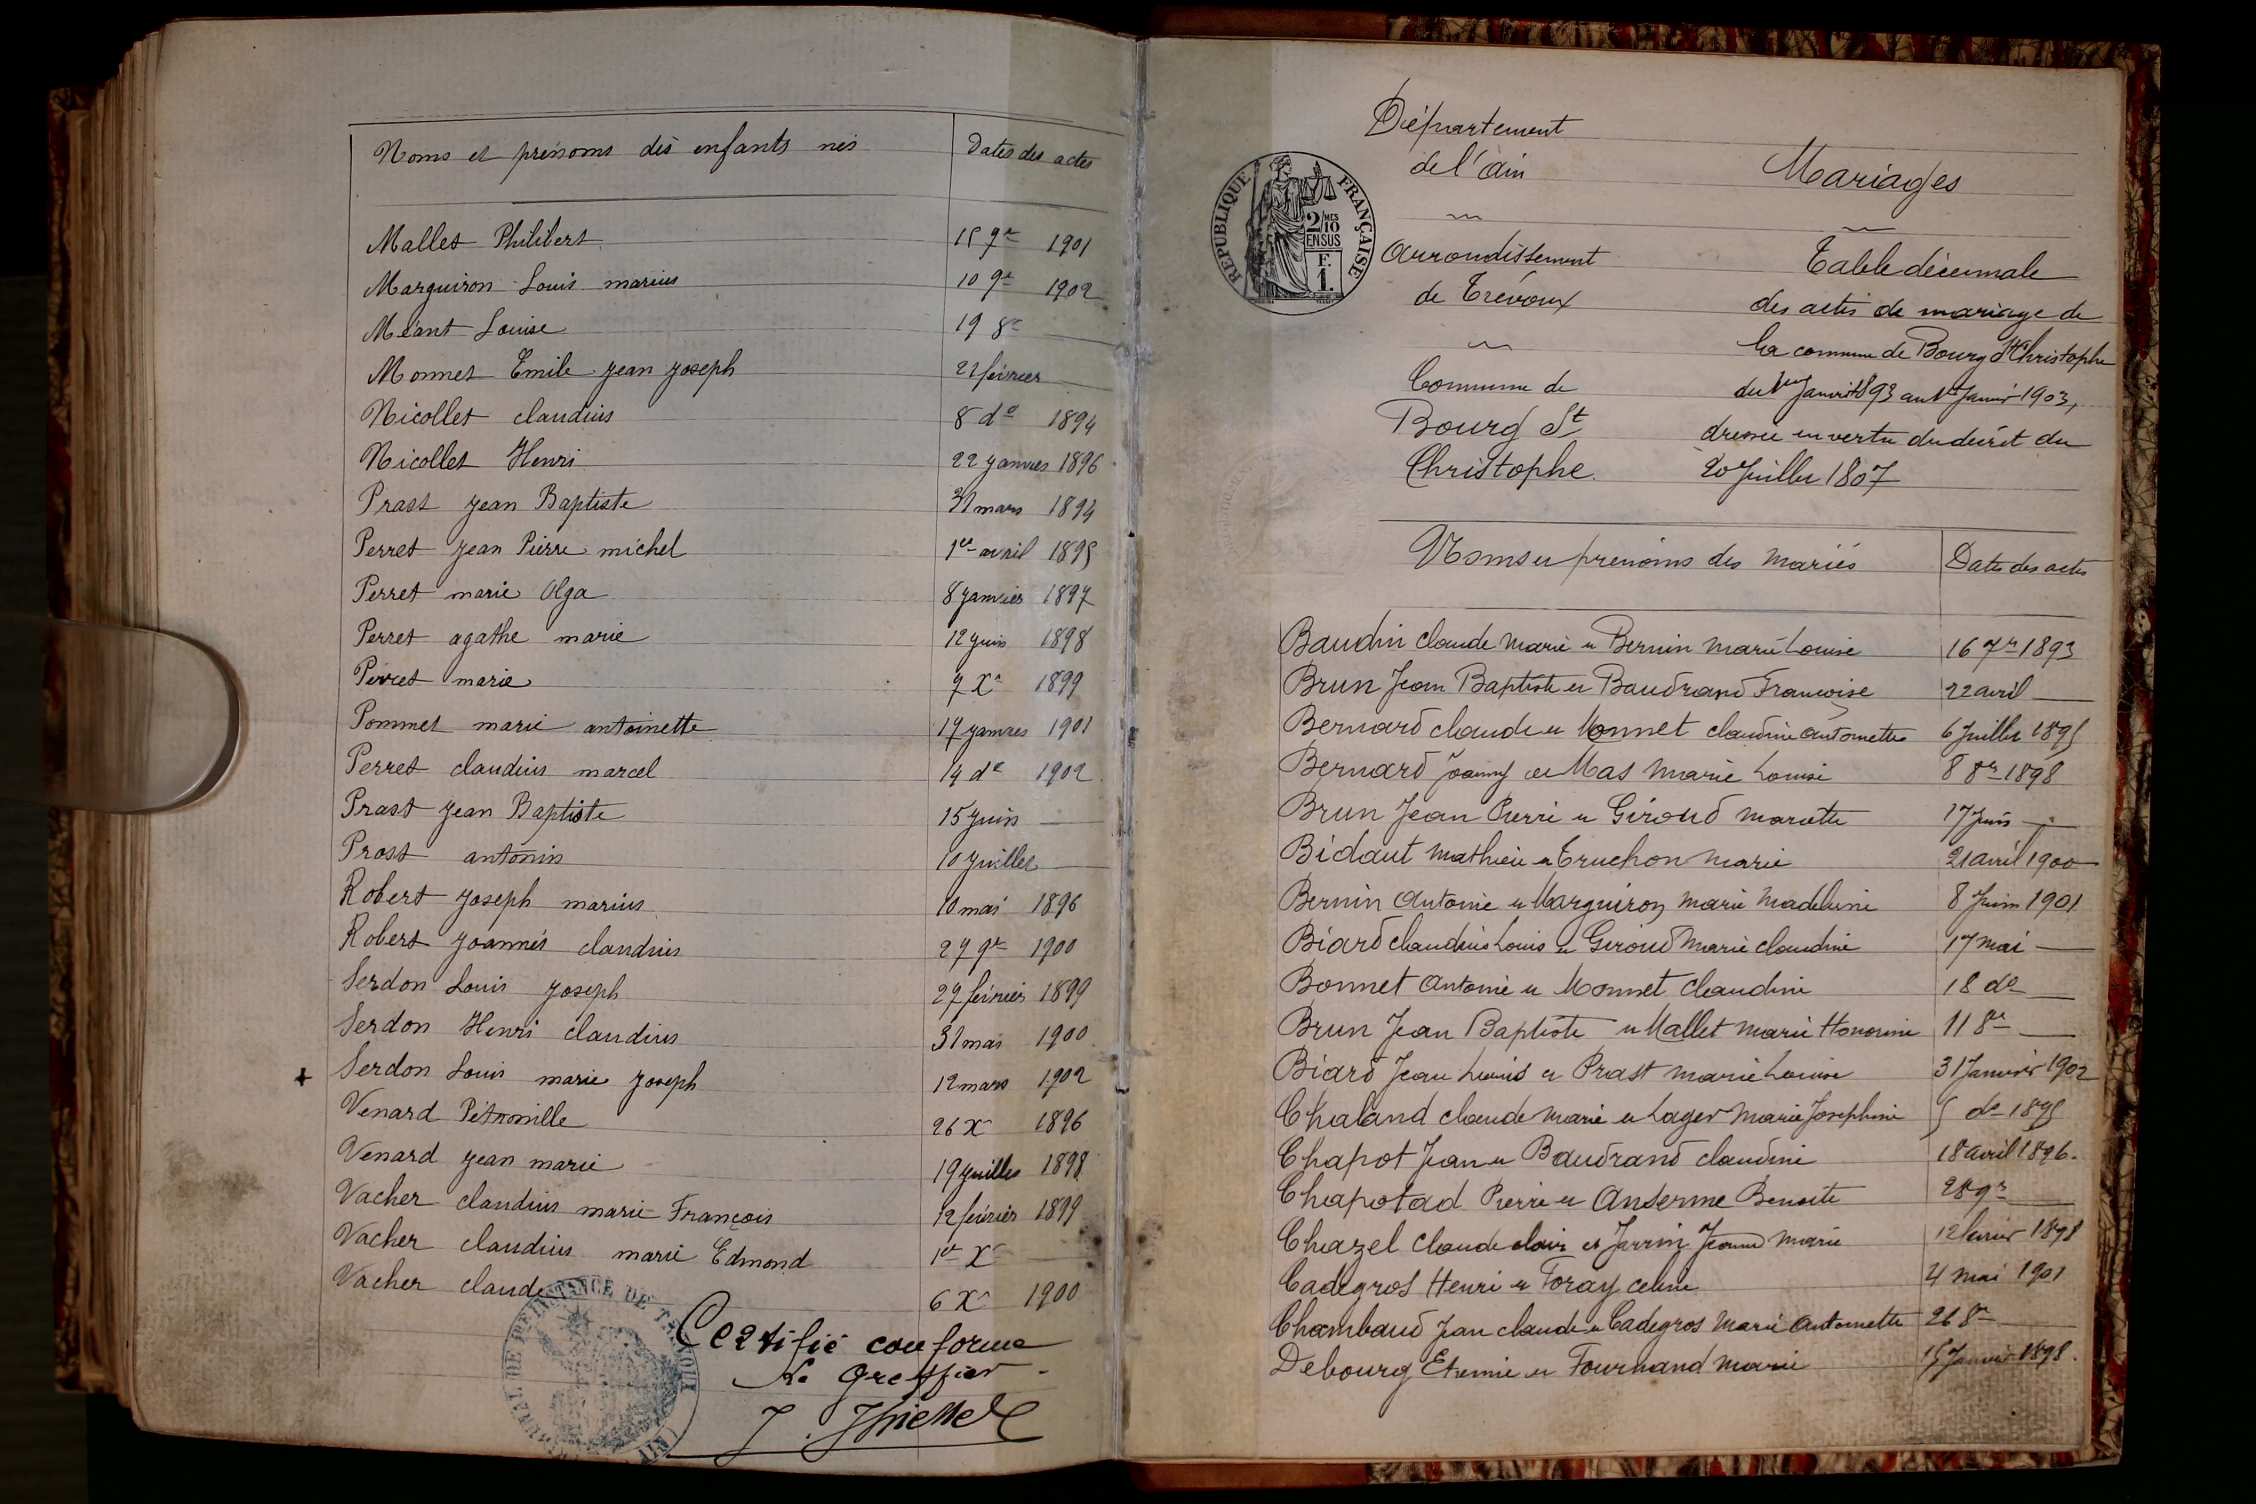 Noms et prénoms des enfants nés
Dates des actes
Mallet Philibert 15 9re 1901
Marguiron Louis marius 10 9re 1902
Méant Louise 19 8re
Monnet Emile jean joseph 22 février
Nicollet claudius 8 do 1894
Nicollet Henri 22 janvier 1896
Prast jean Baptiste 31 mars 1894
Perret jean Pierre michel 1er avril 1895
Perret marie Olga 8 janvier 1897
Perret agathe marie 12 juin 1898
Perret marie 7 Xe 1899
Pommet marie antoinette 17 janvier 1901
Perret claudius marcel 14 do 1902
Prast jean Baptiste 15 juin
Prost antonin 10 juillet
Robert joseph marius 10 mai 1896
Robert joannès claudius 27 9re 1900
Serdon Louis joseph 27 février 1899
Serdon Henri claudius 31 mai 1900
+ Serdon Louis marie joseph 12 mars 1902
Venard Pétronille 26 Xe 1896
Venard jean marie 19 juillet 1898
Vacher claudius marie François 12 février 1899
Vacher claudius marie Edmond 1er Xe
Vacher claude 6 Xe 1900
Certifié conforme
Le Greffier
TRIBUNAL DE 1RE INSTANCE DE TRÉVOUX
Département
de l'Ain
Arrondissement
de Trévoux
Commune de
Bourg St
Christophe
REPUBLIQUE FRANÇAISE
2/10 MES
EN SUS
F.
1.
Mariages
Table décennale
des actes de mariage de
la commune de Bourg St Christophe
du 1er Janvier 1893 au 1er Janvier 1903,
dressée en vertu du décrét du
20 Juillet 1807
Noms et prénoms des mariés
Dates des actes
Baudin Claude Marie et Bernin Marie Louise 16 7re 1893
Brun Jean Baptiste et Baudrand Françoise 22 avril
Bernard claude et Monnet claudine antoinette 6 Juillet 1895
Bernard Joanny et Mas Marie Louise 8 8re 1898
Brun Jean Pierre et Giroud Mariette 17 Juin
Bidaut Mathieu et Truchon Marie 21 avril 1900
Bernin Antoine et Marguiron Marie Madeleine 8 Juin 1901
Biard claudius Louis et Giroud Marie claudine 17 mai
Bonnet Antoine et Monnet Claudine 18 do
Brun Jean Baptiste et Mallet Marie Honorine 11 8re
Biard Jean Louis et Prast Marie Louise 31 Janvier 1902
Chaland claude Marie et Lager Marie Joséphine 5 do 1895
Chapot Jean et Baudrand claudine 18 avril 1896.
Chapotad Pierre et Anserme Benoite 28 9re
Chazel claude clair et Jarrin Jeanne Marie 12 février 1898
Cadegros Henri et Foray celine 4 mai 1901
Chambaud Jean claude et Cadegros Marie Antoinette 26 8re
Debourg Etienne et Fournand Marie 15 Janvier 1898.